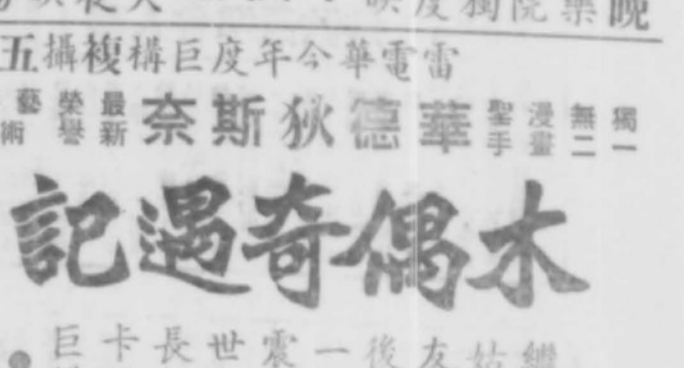 晚樂院獨度映
雷電華今年度巨構複攝五
獨一無二 漫畫聖手 華德狄斯奈 最新榮譽藝術
木偶奇遇記
繼姑友後一震世長卡巨